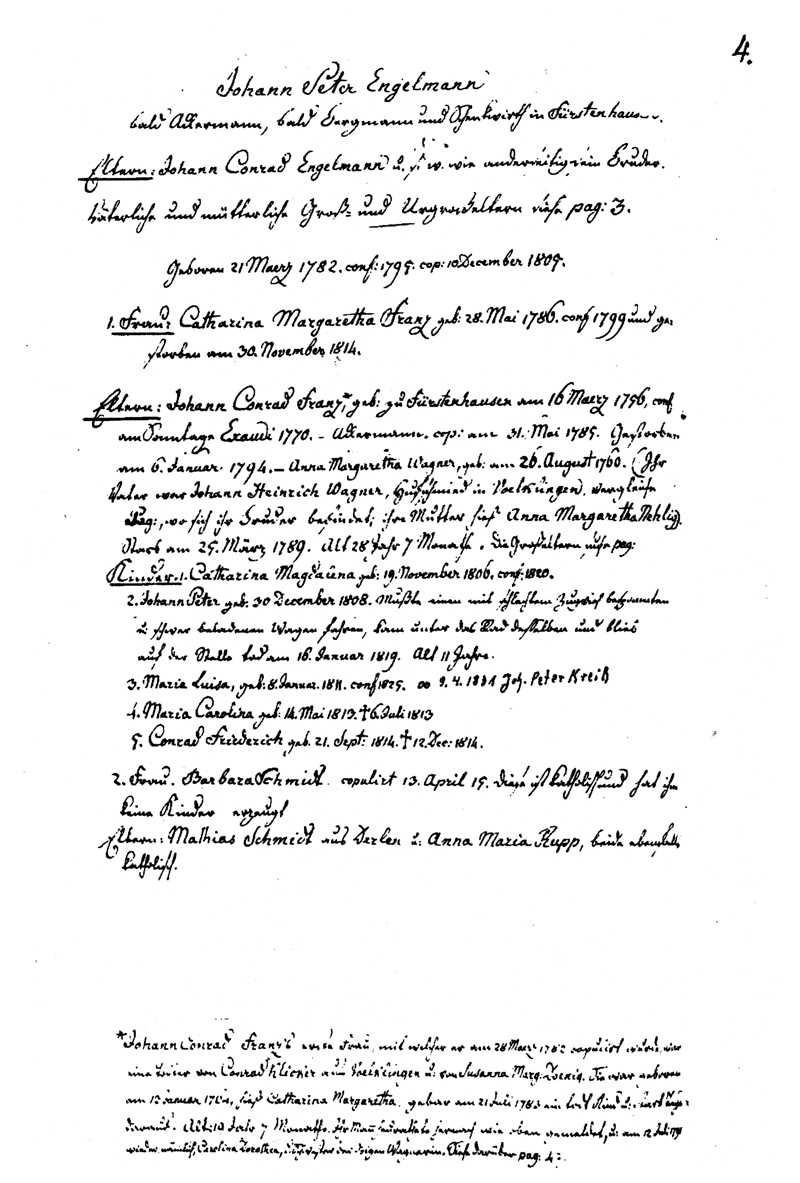 4.
Johann Peter Engelmann
bald Ackermann, bald Bergmann und Schenkwirth in Fürstenhausen.
Eltern: Johann Conrad Engelmann u. s. w. wie anderseitig sein Bruder.
Väterliche und mütterliche Groß- und Urgroßeltern siehe pag: 3.
Geboren 21 Maerz 1782. conf: 1795. cop: 10 December 1805.
1. Frau: Catharina Margaretha Franz geb: 28. Mai 1786. conf 1799 und ge-
storben am 30. November 1814.
Eltern: Johann Conrad Franz,* geb: zu Fürstenhausen am 16 Maerz 1756, conf
am Sonntage Exaudi 1770. - Ackermann. cop: am 31. Mai 1785. Gestorben
am 6. Januar 1794. - Anna Margaretha Wagner, geb: am 26. August 1760. (Ihr
Vater war Johann Heinrich Wagner, Hufschmied in Voelklingen, vergleiche
pag:, wo sich ihr Bruder befindet; ihre Mutter hieß Anna Margaretha
Starb am 25. März 1789. Alt 28 Jahr 7 Monath. Die Großeltern siehe pag:
Kinder. 1. Catharina Magdalena geb: 19. November 1806. conf: 1820.
2. Johann Peter geb: 30 December 1808. Mußte einen mit schlechtem Zugvieh bespannten
u schwer beladenen Wagen fahren, kam unter das Rad desselben und blieb
auf der Stelle tod am 16. Januar 1819. Alt 11 Jahre.
3. Maria Luisa, geb: 8. Januar. 1811. conf 1825. ∞ 9. 4. 1831 Joh. Peter Kreiß
4. Maria Carolina geb: 14. Mai 1813. † 6. Juli 1813
5. Conrad Friderich geb. 21. Sept: 1814. † 12. Dec: 1814.
2. Frau. Barbara Schmidt copulirt 13. April 15. Diese ist katholisch und hat ihm
keine Kinder erzeugt
Eltern: Mathias Schmidt aus Derlen u: Anna Maria Rupp, beide ebenfalls
katholisch.
*Johann Conrad Franz's erste Frau, mit welcher er am 28 Maerz 1782 copulirt wurde, war
eine Tochter von Conrad Klicker aus Voelklingen u: von Susanna Marg. Koenig. Sie war geboren
am 13 Januar, hieß Catharina Margaretha. gebar am 21 Juli 1783 ein todt Kind u: starb
daran. Alt: 19 Jahr 7 Monathe. Ihr Mann heirathete hernach wie oben gemeldet, u: am 12 Juli
wieder nämlich Carolina Dorothea, Schwester der obigen Wagnerin. Siehe darüber pag: 4: